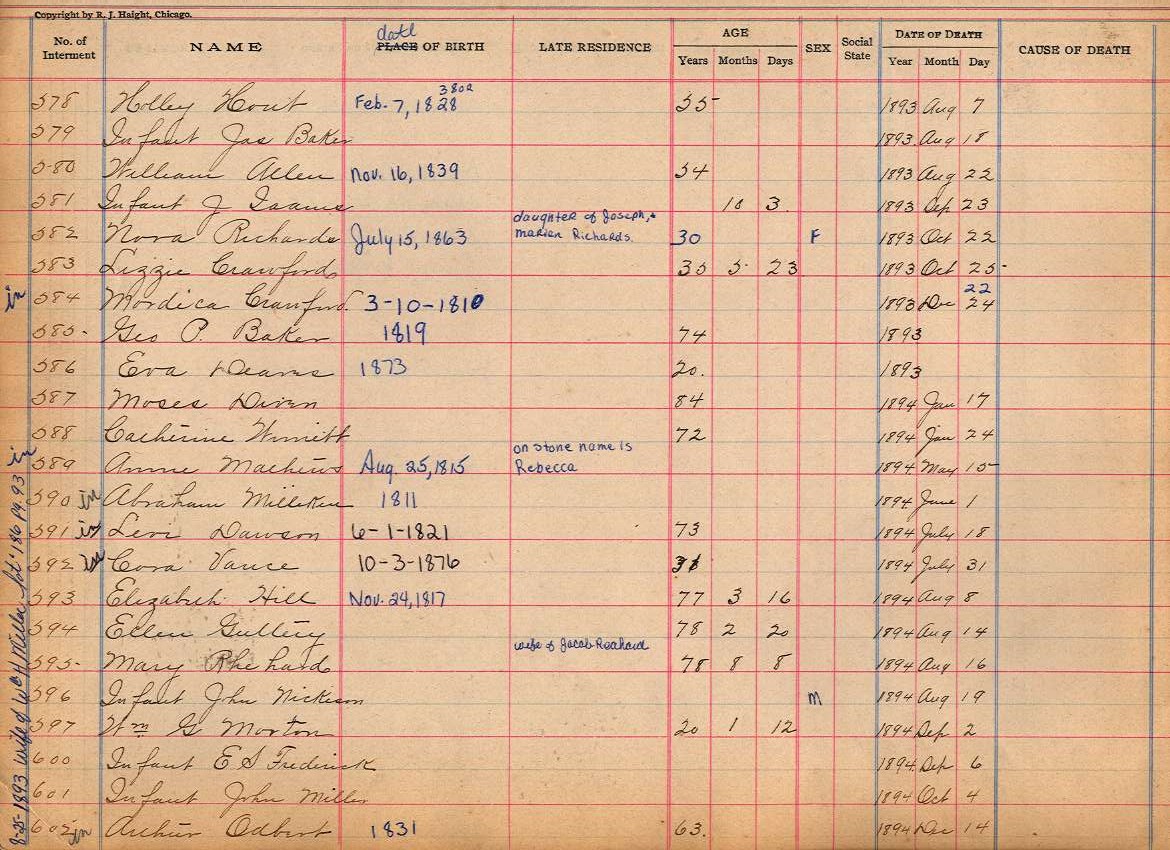 Copyright by R. J. Haight, Chicago.
No. of Interment NAME date PLACE OF BIRTH LATE RESIDENCE AGE Years Months Days SEX Social State DATE OF DEATH Year Month Day CAUSE OF DEATH
578 Holley Hout Feb. 7, 1828 38 or 55 1893 Aug 7
579 Infant Jas Baker 1893 Aug 18
580 William Allen Nov. 16, 1839 54 1893 Aug 22
581 Infant J 10 3 1893 Sep 23
daughter of Joseph, &
582 Nora Richards July 15, 1863 Marien Richards. 30 F 1893 Oct 22
583 Lizzie Crawford 35 5 23 1893 Oct 25
22
in 584 Mordica Crawford 3-10-1810 1893 Dec 24
585 Geo P. Baker 1819 74 1893
586 Eva Deams 1873 20. 1893
587 Moses Diven 84 1894 Jan 17
588 Catherine 72 1894 Jan 24
on stone name is
589 Annie Mathews Aug. 25, 1815 Rebecca 1894 May 15
590 in Abraham Milliken 1811 1894 June 1
591 in Levi Dawson 6-1-1821 73 1894 July 18
592 in Cora Vance 10-3-1876 1894 July 31
593 Elizabeth Hill Nov. 24, 1817 77 3 16 1894 Aug 8
594 Ellen 78 2 20 1894 Aug 14
wife of Jacob Reahard
595 Mary Rhehard 78 8 8 1894 Aug 16
596 Infant John Nickeson M 1894 Aug 19
597 Wm G Morton 20 1 12 1894 Sep 2
600 Infant E S Fredrick 1894 Sep 6
601 Infant John Miller 1894 Oct 4
602 in Arthur Odbert 1831 63. 1894 Dec 14
8-25-1893 wife of Wm H Miller Lot 186 pg. 93 in